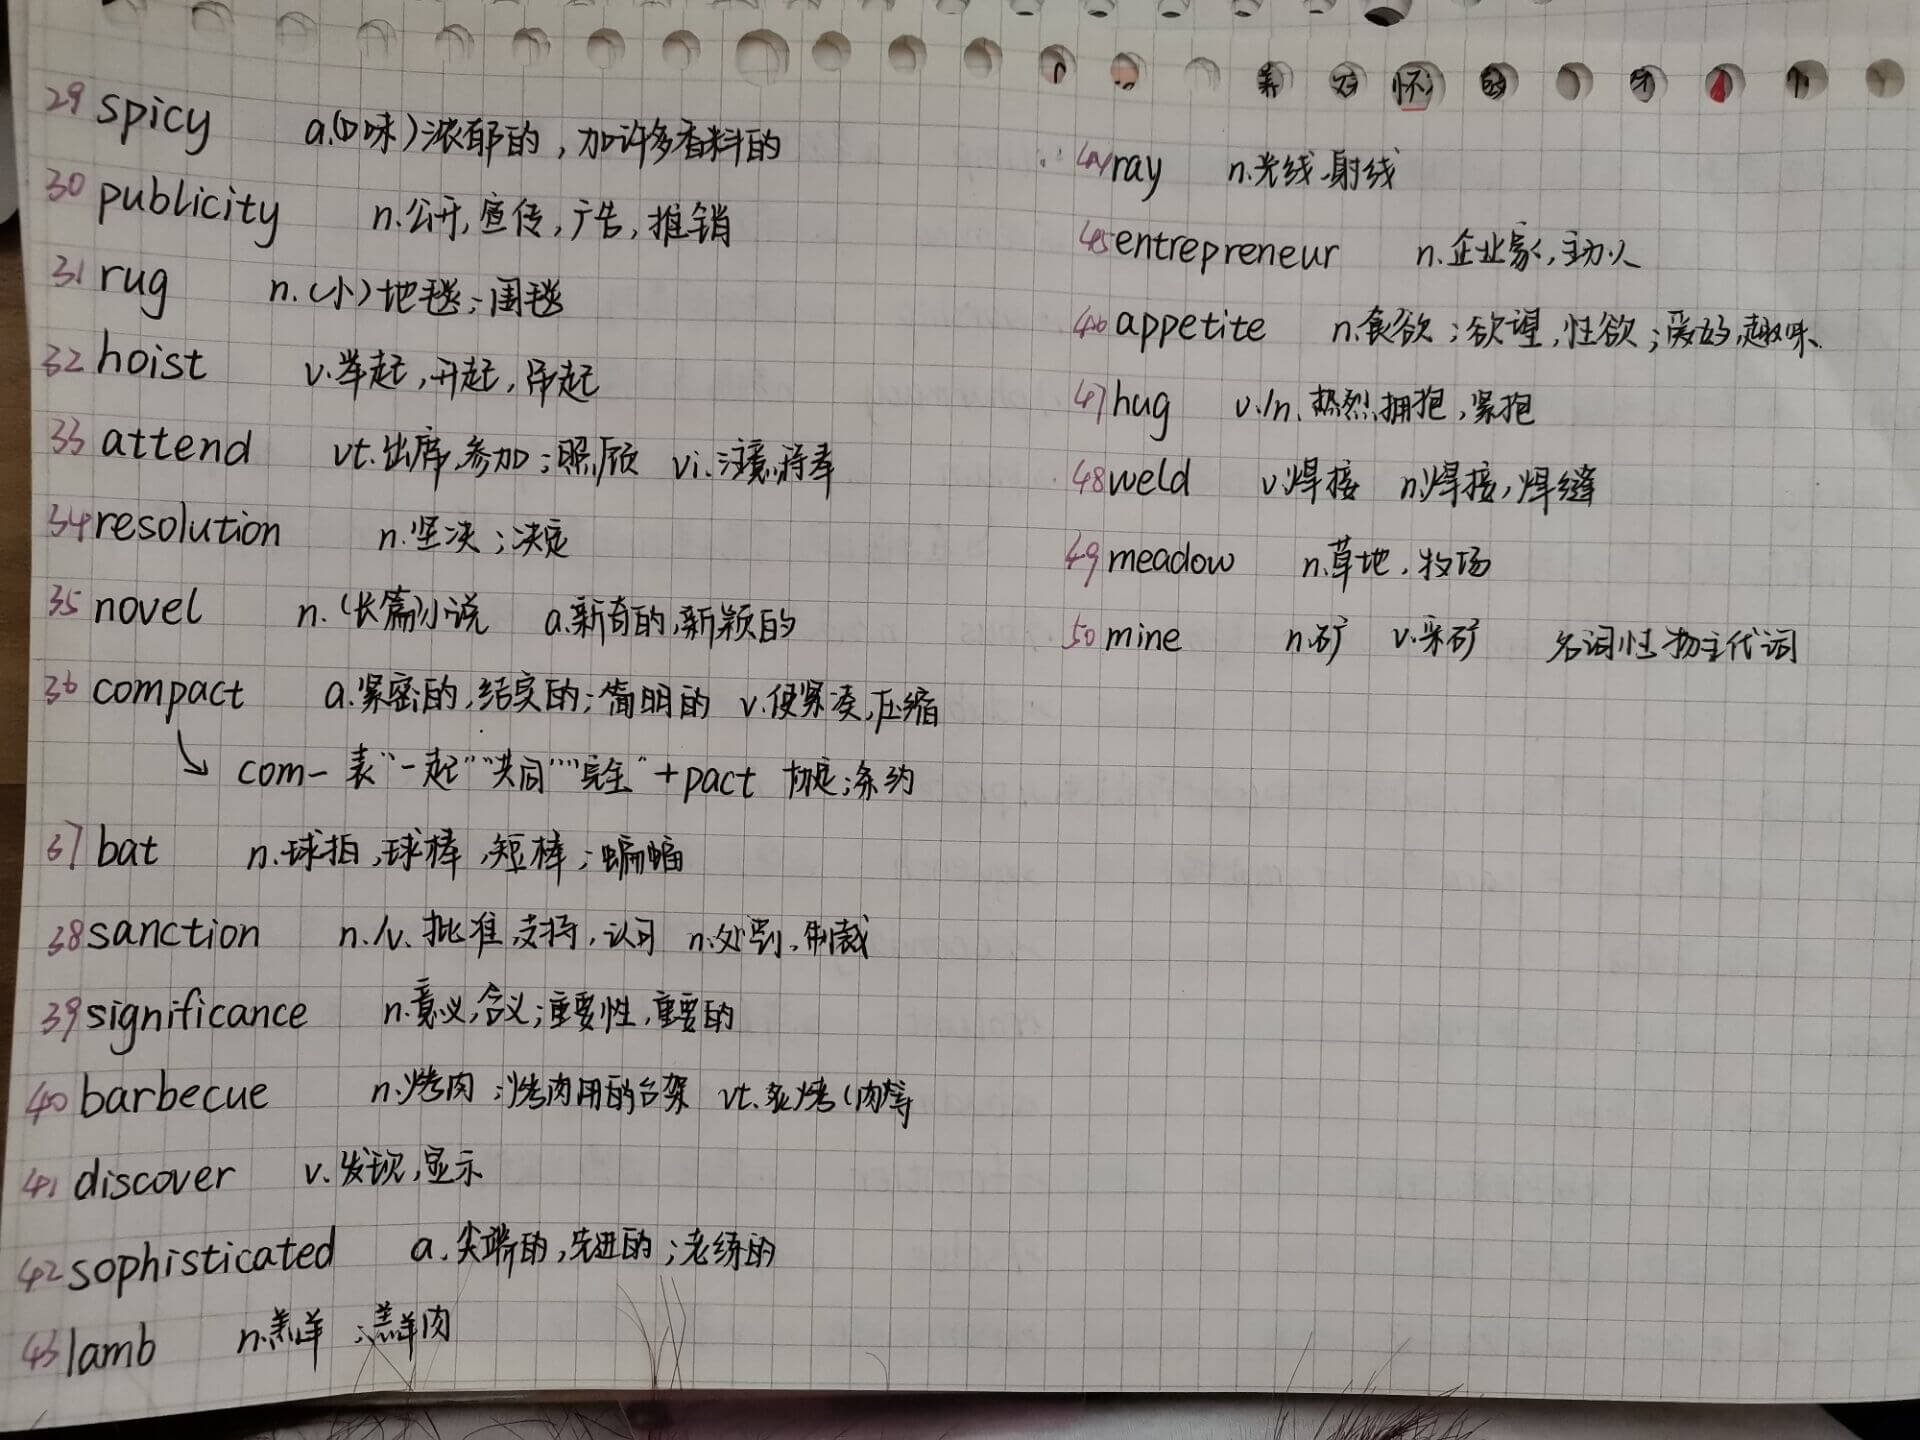 29 spicy a.(口味)浓郁的，加许多香料的
30 publicity n.公开,宣传,广告,推销
31 rug n.(小)地毯;围毯
32 hoist v.举起,升起,吊起
33 attend vt.出席,参加;照顾 vi.注意,侍奉
34 resolution n.坚决;决定
35 novel n.(长篇)小说 a.新奇的,新颖的
36 compact a.紧密的,结实的;简明的 v.使紧凑,压缩
com- 表"一起""共同""完全"+pact 协定;条约
37 bat n.球拍,球棒,短棒;蝙蝠
38 sanction n./v.批准,支持,认可 n.处罚,制裁
39 significance n.意义,含义;重要性,重要的
40 barbecue n.烤肉;烤肉用的台架 vt.炙烤(肉等
41 discover v.发现,显示
42 sophisticated a.尖端的,先进的;老练的
43 lamb n.羔羊;羔羊肉
44 ray n.光线,射线
45 entrepreneur n.企业家,主办人
46 appetite n.食欲;欲望,性欲;爱好,趣味
47 hug v./n.热烈拥抱,紧抱
48 weld v.焊接 n.焊接,焊缝
49 meadow n.草地,牧场
50 mine n.矿 v.采矿 名词性物主代词